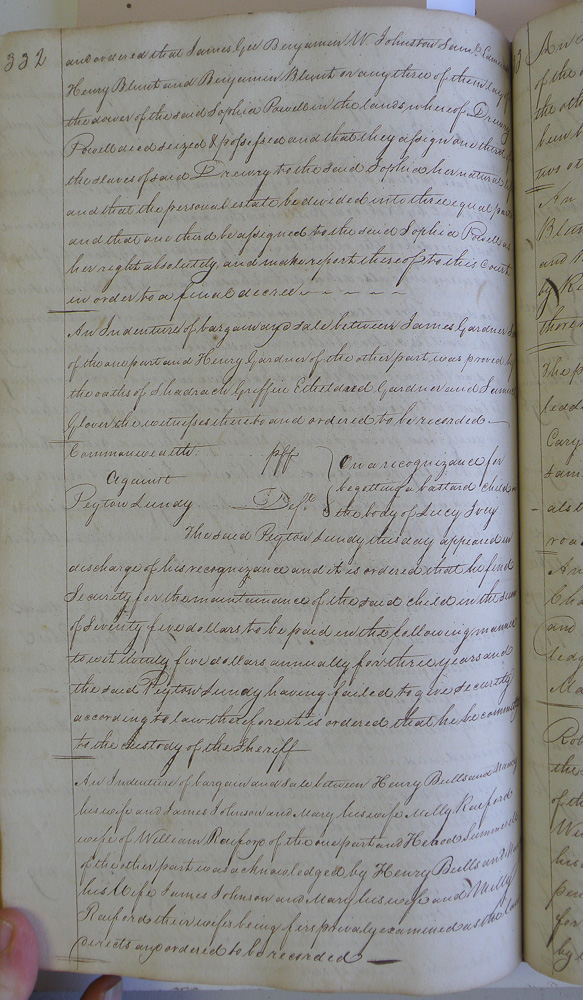 332
and ordered that James Gee Benjamin W. Johnston Saml.
Henry Blunt and Benjamin Blunt or any three of them lay off
the dower of the said Sophia Powell in the lands whereof Drewry
Powell died seized & possessed and that they assign one third of
the slaves of said Drewry to the said Sophia her natural life
and that the personal estate be divided into three equal parts
and that one third be assigned to the said Sophia Powell as
her right absolutely, and make report thereof to this Court
in order to a final decree
An Indenture of bargain and sale between James Gardner
of the one part and Henry Gardner of the other part was proved by
the oaths of Shadrach Griffin Etheldred Gardner and
Glover the witnesses thereto and ordered to be recorded
Commonwealth pff
Against
Peyton Lundy Deft.
On a recognizance for
begetting a bastard child on
the body of Lucy Ivey
The said Peyton Lundy this day appeared in
discharge of his recognizance and it is ordered that he find
Security for the maintainance of the said child in the sum
of Seventy five dollars to be paid in the following manner
to wit twenty five dollars annually for three years and
the said Peyton Lundy having failed to give security
according to law therefore it is ordered that he be committed
to the custody of the Sheriff
An Indenture of bargain and sale between Henry Bulls and Nancy
his wife and James Johnson and Mary his wife Milly Raiford
wife of William Raiford of the one part and Herod
of the other part was acknowledged by Henry Bulls and
his Wife James Johnson and Mary his wife and Milly
Raiford their wifes being first privaly examined as the law
directs and ordered to be recorded